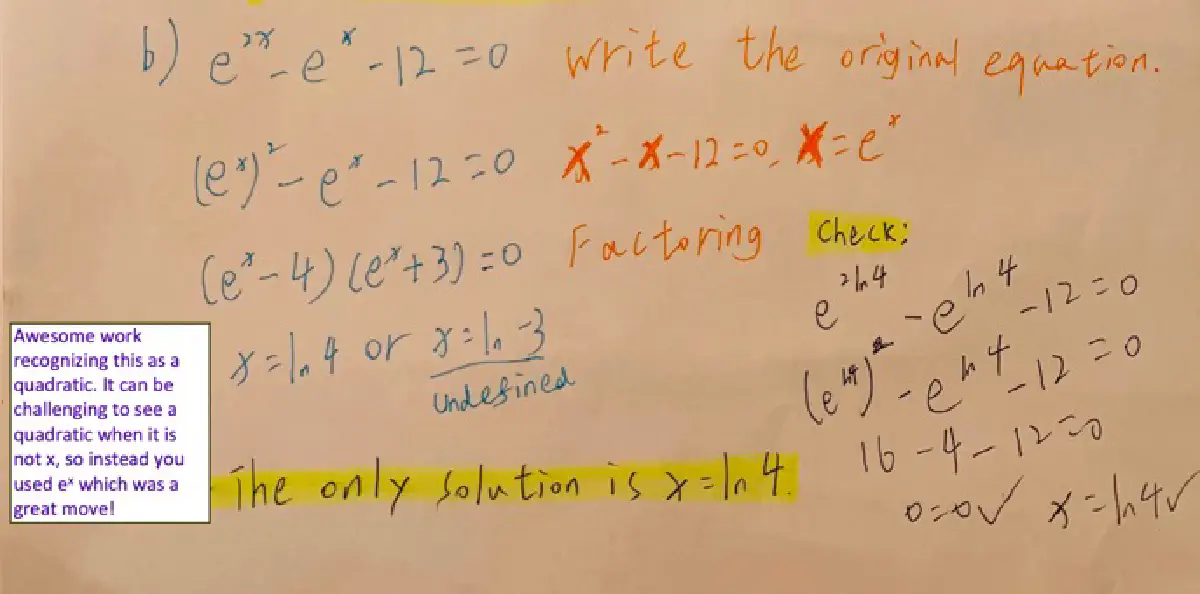 b) e²ˣ - eˣ - 12 = 0 Write the original equation.
(eˣ)² - eˣ - 12 = 0 X² - X - 12 = 0, X = eˣ
(eˣ - 4)(eˣ + 3) = 0 Factoring
x = ln 4 or x = ln -3
undefined
The only solution is x = ln 4.
Check:
e^2ln4 - e^ln4 - 12 = 0
(e^ln4)² - e^ln4 - 12 = 0
16 - 4 - 12 = 0
0 = 0 ✓ x = ln 4 ✓
Awesome work
recognizing this as a
quadratic. It can be
challenging to see a
quadratic when it is
not x, so instead you
used eˣ which was a
great move!